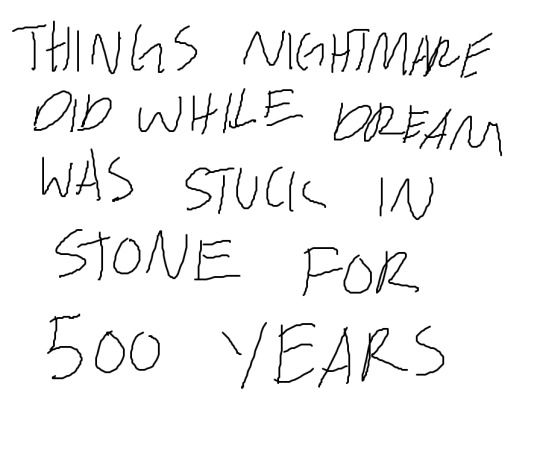 THINGS NIGHTMARE
DID WHILE DREAM
WAS STUCK IN
STONE FOR
500 YEARS